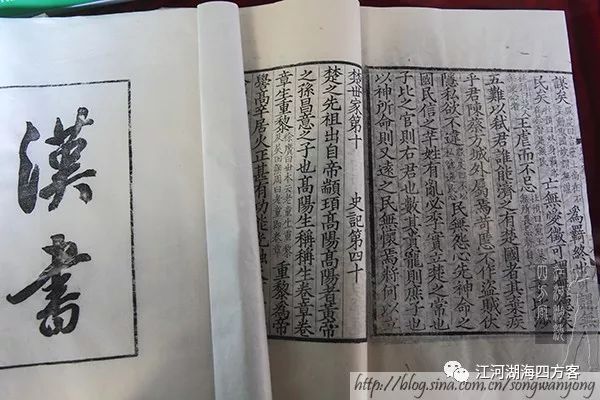 謀矣 為羈終世
民矣 亡無愛徵可
王虐而不忌
五難以弒君誰能濟之有楚國者其棄疾
乎君陳蔡方城外屬焉苛慝不作盜賊伏
隱私欲不違 民無怨心先神命之
國民信之羋姓有亂必季實立楚之常也
子比之官則右尹也數其貴寵則庶子也
以神所命則又遠之民無懷焉將何以立
楚世家第十 史記第四十
楚之先祖出自帝顓頊高陽高陽者黃帝
之孫昌意之子也高陽生稱稱生卷章卷
章生重黎 重黎為帝
嚳高辛居火正甚有功能光融
漢書
江河湖海四方客
http://blog.sina.com.cn/songwanyong